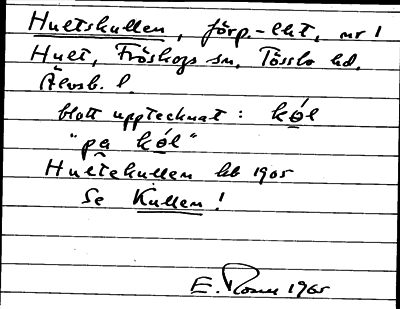 Hultskullen, förp.-lht, nr 1
Hult, Fröskogs sn, Tössbo hd.
Älvsb. l.
blott upptecknat: kǿl
"pa kǿl"
Hultekullen kb 1905
Se Kullen!
E. Rosell 1965